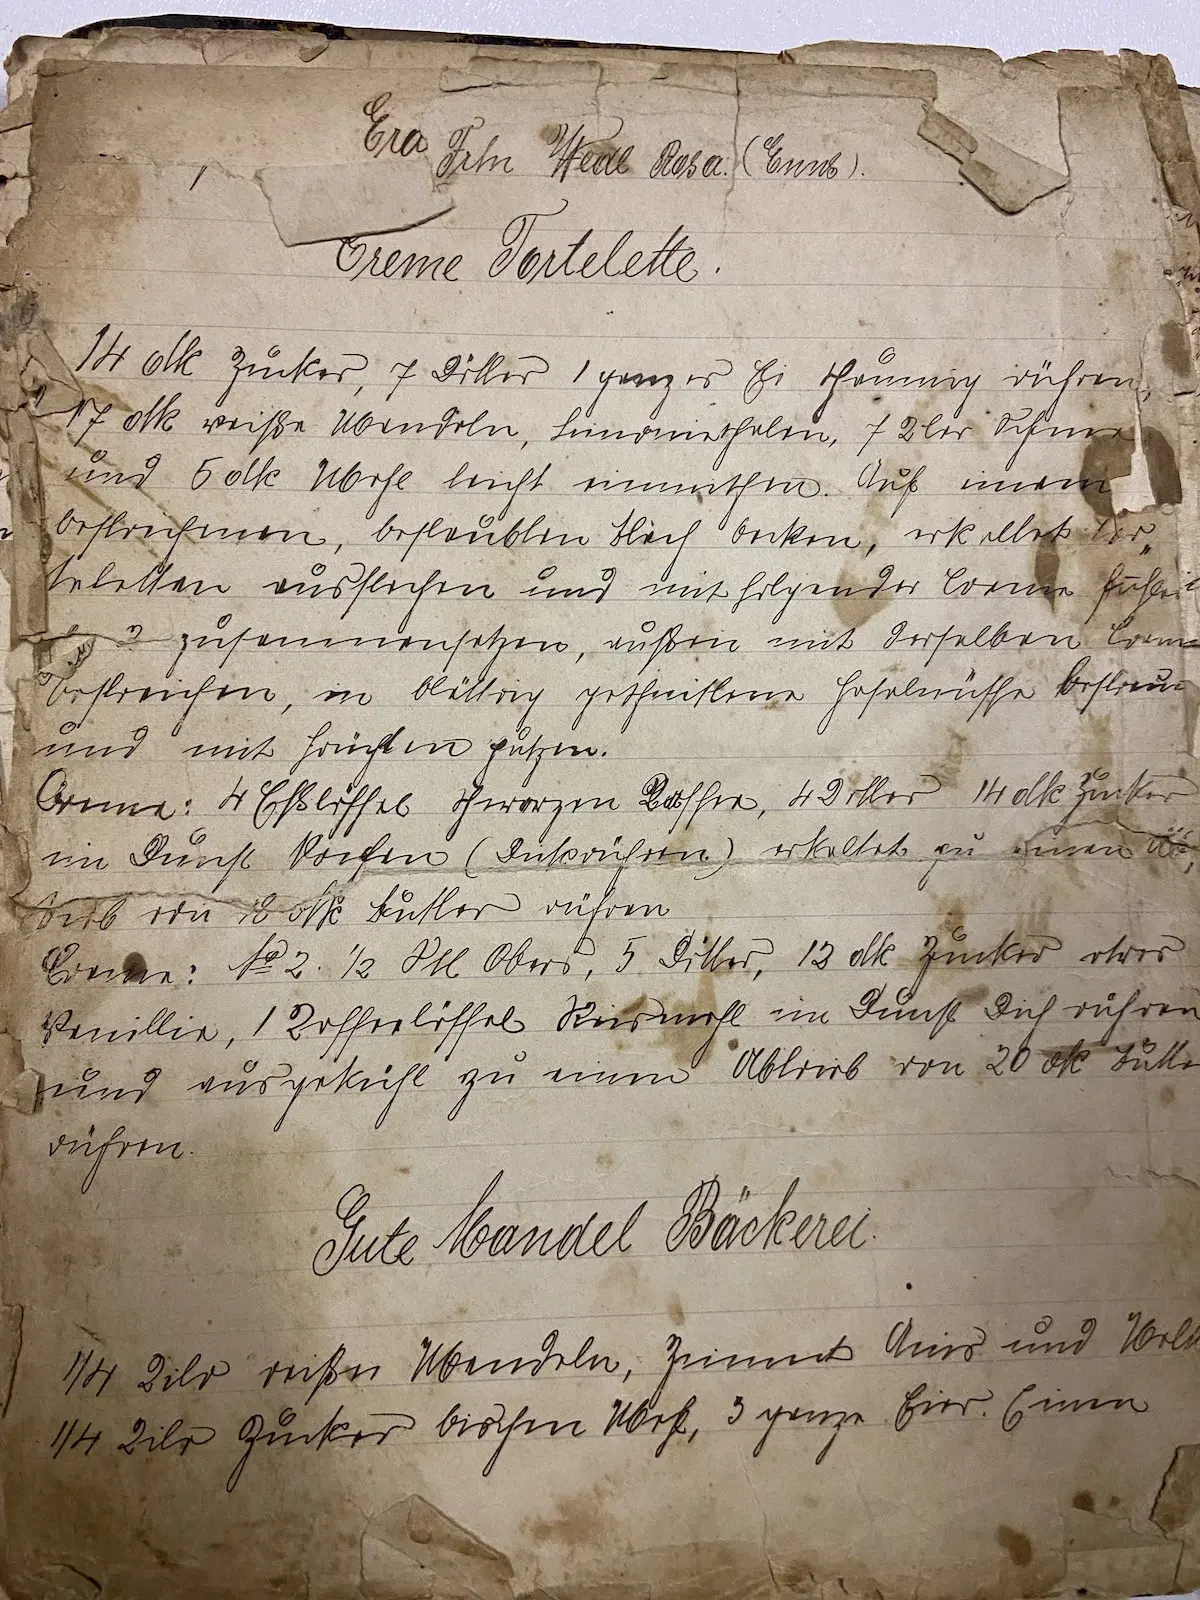 Era Frln Wedl Rosa. (Enns).
Creme Tortelette.
14 dk Zucker, 7 Dotter 1 ganzes Ei schaumig rühren,
17 dk weiße Mandeln, Limonieschalen, 7 Klar Schnee
und 5 dk Mehl leicht einmischen. Auf einem
bestrichenen, bestaubten Blech backen, erkaltet Tor„
teletten ausstechen und mit folgender Creme
zusammensetzen, außen mit derselben Creme
bestreichen, in blättrig geschnittene Haselnüsse bestreun
und mit Früchten putzen.
Creme: 4 Eßlöffel schwarzen Kaffee, 4 Dotter 14 dk Zucker
im Dunst kochen (Dickrühren) erkaltet zu einen Ab„
trieb von 18 dk Butter rühren
Creme: No 2. ½ Obers, 5 Dotter, 13 dk Zucker etwas
Vanillie, 1 Kaffeelöffel Reismehl im Dunst Dick rühren
und ausgekühl zu einem Abtrieb von 20 dk Butter
rühren.
Gute Mandel Bäckerei.
1/4 Kilo weißen Mandeln, Zimmt Anis und
1/4 Kilo Zucker bischen Mehl, 3 ganze Eier. Einen